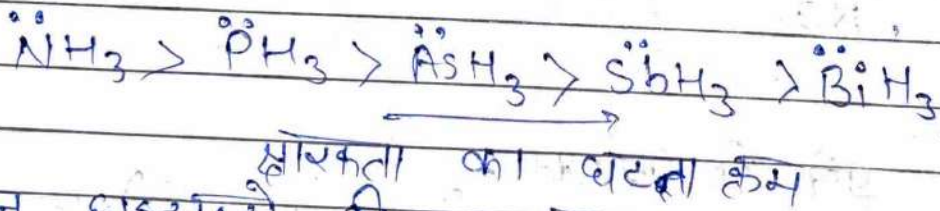 N̈H₃ > P̈H₃ > ÄsH₃ > S̈bH₃ > B̈iH₃
क्षारकता का घटता क्रम